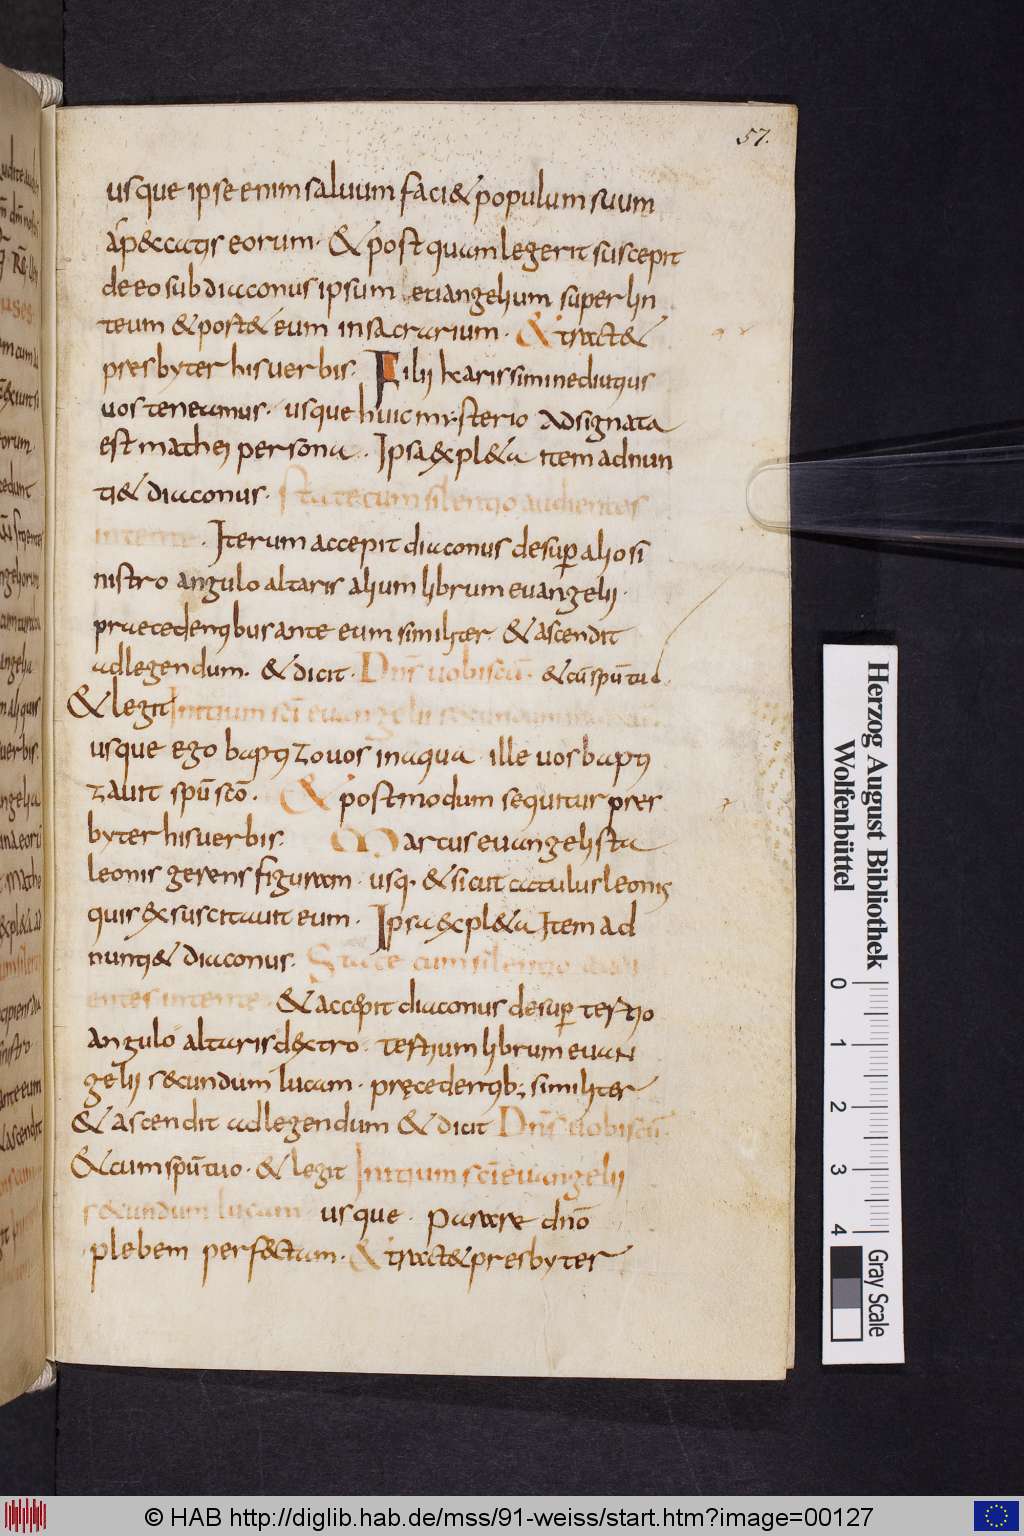 57.
usque ipse enim saluum faci& populum suum
a p&catis eorum. & post quam legerit suscepit
de eo subdiaconus ipsum euangelium super lin
teum & port& eum in sacrarium. & tract&
presbyter his uerbis. Filii karissimi ne diutius
uos teneamus. usque huic mysterio adsignata
est mathei persona. Ipsa expl&a item adnun
ti& diaconus. State cum silentio audientes
intente. Iterum accepit diaconus de sup alio si
nistro angulo altaris alium librum euangelii.
praecedentibus ante eum similiter. & ascendit
ad legendum. & dicit. Dns uobiscu. & cu spu tuo.
& legit Initium sci euangelii secundum marcum
usque ego baptizo uos in aqua ille uos bapti
zauit spu sco. & postmodum sequitur pres
byter his uerbis. Marcus euangelista
leonis gerens figuram. usq. & sicut catulus leonis
quis exsuscitauit eum. Ipsa expl&a Item ad
nunti& diaconus. State cum silentio audi
entes intente. & accepit diaconus de sup tertio
angulo altaris dextro. tertium librum euan
gelii secundum lucam. precedentib; similiter
& ascendit ad legendum & dicit Dns uobiscu.
& cum spu tuo. & legit Initium sci euangelii
secundum lucam usque. parare dno
plebem perfectam. & tract& presbyter
Herzog August Bibliothek
Wolfenbüttel
0 1 2 3 4
Gray Scale
© HAB http://diglib.hab.de/mss/91-weiss/start.htm?image=00127